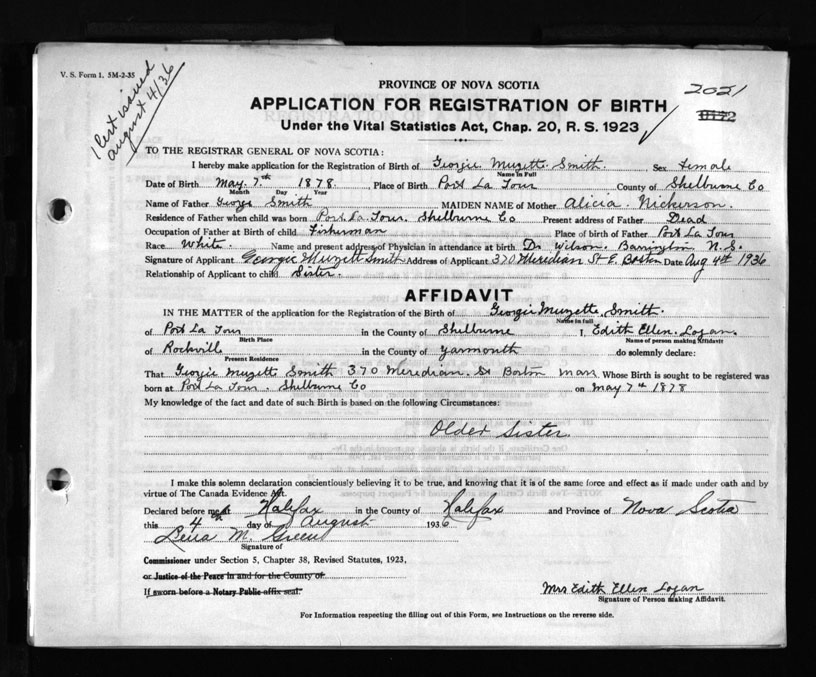 V. S. Form 1. 5M-2-35
1 Cert issued
august 4/36
PROVINCE OF NOVA SCOTIA
2021
APPLICATION FOR REGISTRATION OF BIRTH
Under the Vital Statistics Act, Chap. 20, R. S. 1923
TO THE REGISTRAR GENERAL OF NOVA SCOTIA:
I hereby make application for the Registration of Birth of Georgie Muzette Smith. Sex female
Name in Full
Date of Birth May 7th 1878. Place of Birth Port La Tour County of Shelburne Co
Month Day Year
Name of Father George Smith MAIDEN NAME of Mother Alicia Nickerson.
Residence of Father when child was born Port La Tour. Shelburne Co Present address of Father Dead
Occupation of Father at Birth of child Fisherman Place of birth of Father Port La Tour
Race White. Name and present address of Physician in attendance at birth Dr Wilson. Barrington N. S.
Signature of Applicant Georgie Muzett Smith Address of Applicant 370 Meridian St E. Boston Date Aug 4th 1936
Relationship of Applicant to child Sister.
AFFIDAVIT
IN THE MATTER of the application for the Registration of the Birth of Georgie Muzette Smith.
Name in full
of Port La Tour in the County of Shelburne I, Edith Ellen. Logan.
Birth Place Name of person making Affidavit
of Rockville in the County of Yarmouth do solemnly declare:
Present Residence
That Georgie Muzette Smith 370 Meredian. St Boston Mass Whose Birth is sought to be registered was
born at Port La Tour. Shelburne Co on May 7th 1878
My knowledge of the fact and date of such Birth is based on the following Circumstances:
Older Sister.
I make this solemn declaration conscientiously believing it to be true, and knowing that it is of the same force and effect as if made under oath and by
virtue of The Canada Evidence Act.
Declared before me at Halifax in the County of Halifax and Province of Nova Scotia
this 4th day of August 1936
M. Green
Signature of
Commissioner under Section 5, Chapter 38, Revised Statutes, 1923,
or Justice of the Peace in and for the County of
If sworn before a Notary Public affix seal.
Mrs Edith Ellen Logan
Signature of Person making Affidavit.
For Information respecting the filling out of this Form, see Instructions on the reverse side.